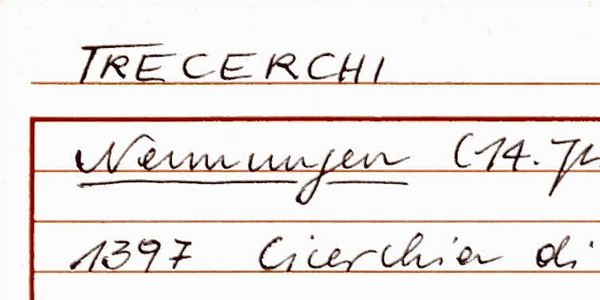 TRECERCHI
Nennungen (14. Jh
1397 Cicerchia di